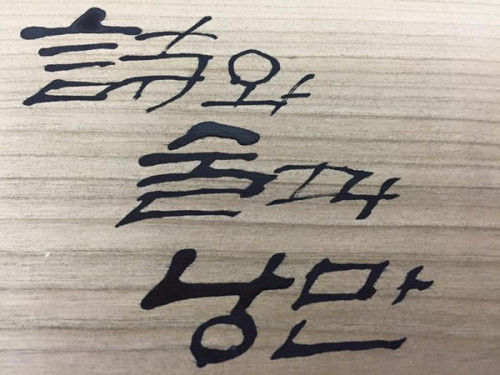 詩와
술과
낭만